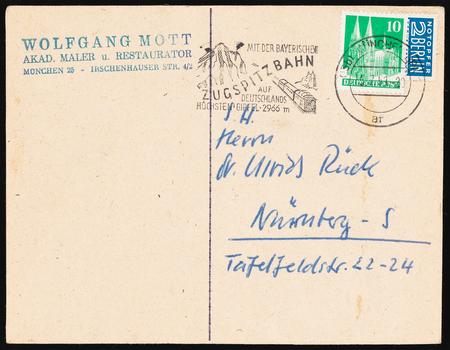 WOLFGANG MOTT
AKAD. MALER u. RESTAURATOR
MÜNCHEN 25 - IRSCHENHAUSER STR. 4/2
MIT DER BAYERISCHEN
ZUGSPITZBAHN
AUF
DEUTSCHLANDS
HÖCHSTEN GIPFEL · 2966 m
MÜNCHEN
10
DEUTSCHE POST
NOTOPFER
2 BERLIN
ar
S. H.
Herrn
Dr. Ulrich Rück
Nürnberg - S
Tafelfeldstr. 22-24